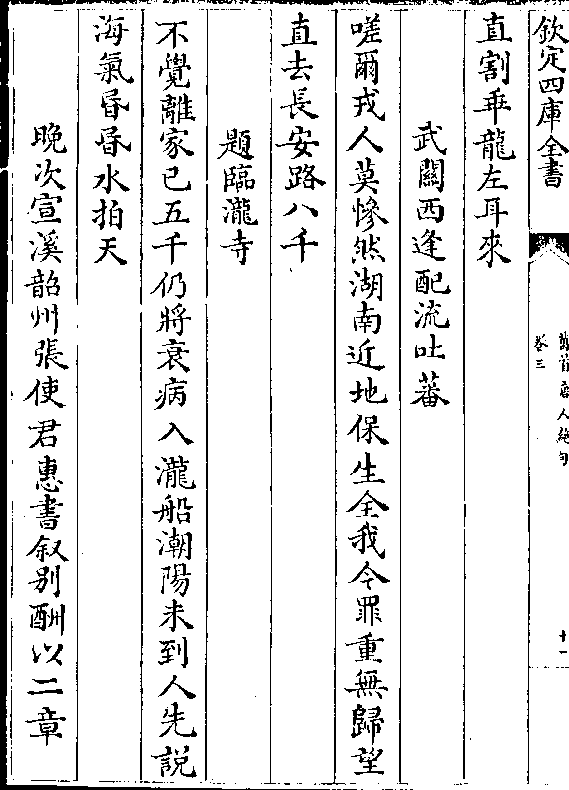 欽定四庫全書
萬首唐人絶句
卷三
十一
直割乖龍左耳來
武關西逢配流吐蕃
嗟爾戎人莫慘然湖南近地保生全我今罪重無歸望
直去長安路八千
題臨瀧寺
不覺離家已五千仍將衰病入瀧船潮陽未到人先説
海氣昏昏水拍天
晩次宣溪韶州張使君惠書叙别酬以二章